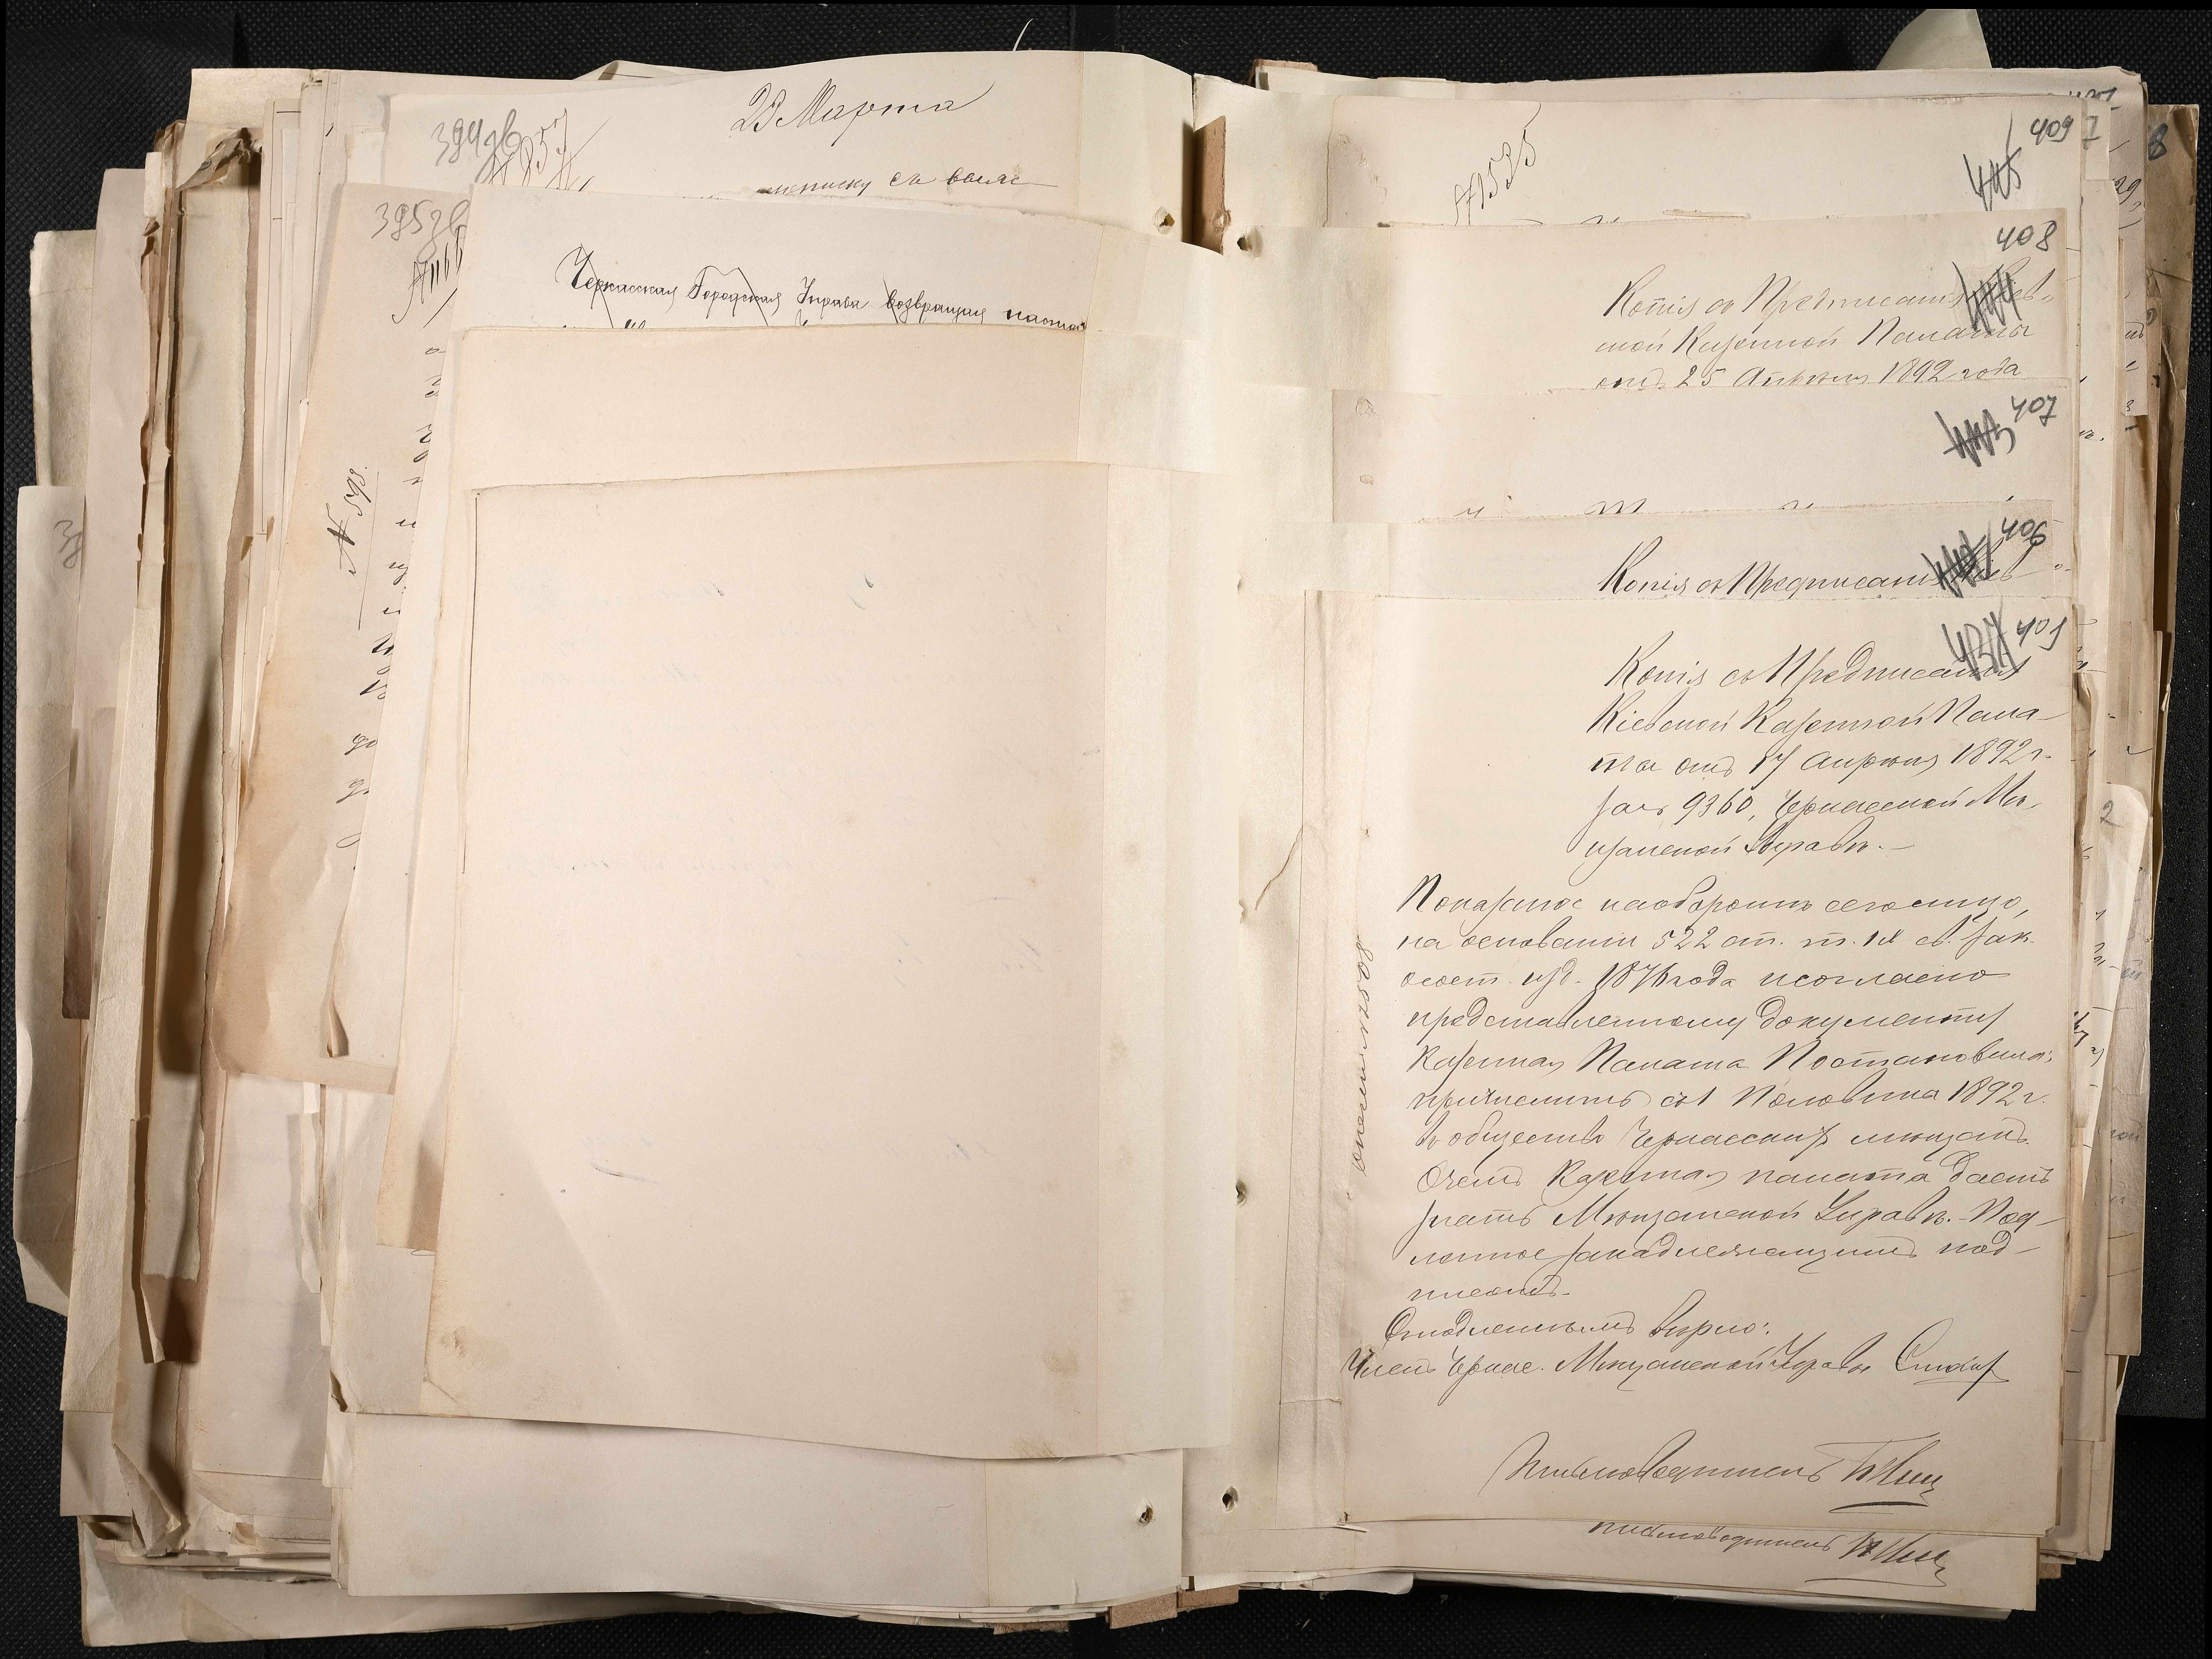 23 Марта
394 зв
395 зв
Черкасская Городская Управа возвращая
№ 598.
409
№ 1535
408
Копія съ Предписанія Кіев-
ской Казенной Палаты
отъ 25 Апрѣля 1892 года
407
406
Копія съ Предписанія Кіев
405
437
Копія съ Предписанія
Кіевской Казенной Пала-
ты отъ 17 Апрѣля 1892 г.
за № 9360, Черкасской Мѣ-
щанской Управѣ.-
Показаное наоборотѣ сего лицо,
на основаніи 522 ст. т. IX св. Зак.
осост. изд. 1876 года и согласно
представленному документу
Казенная Палата Постановила:
причислить съ 1 Половина 1892 г.
въ общество Черкасскихъ мѣщанъ.
О чемъ Казенная палата даетъ
знать Мѣщанской Управѣ.- Под-
линное за надлежащимъ под-
писомъ.
Съ подленнымъ вѣрно:
Членъ Черкас. Мѣщанской Управы
Письмоводитель
письмоводитель